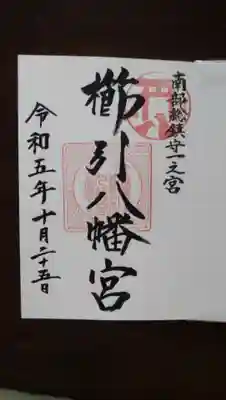 南部総鎮守一之宮
櫛引八幡宮
令和五年十月二十五日